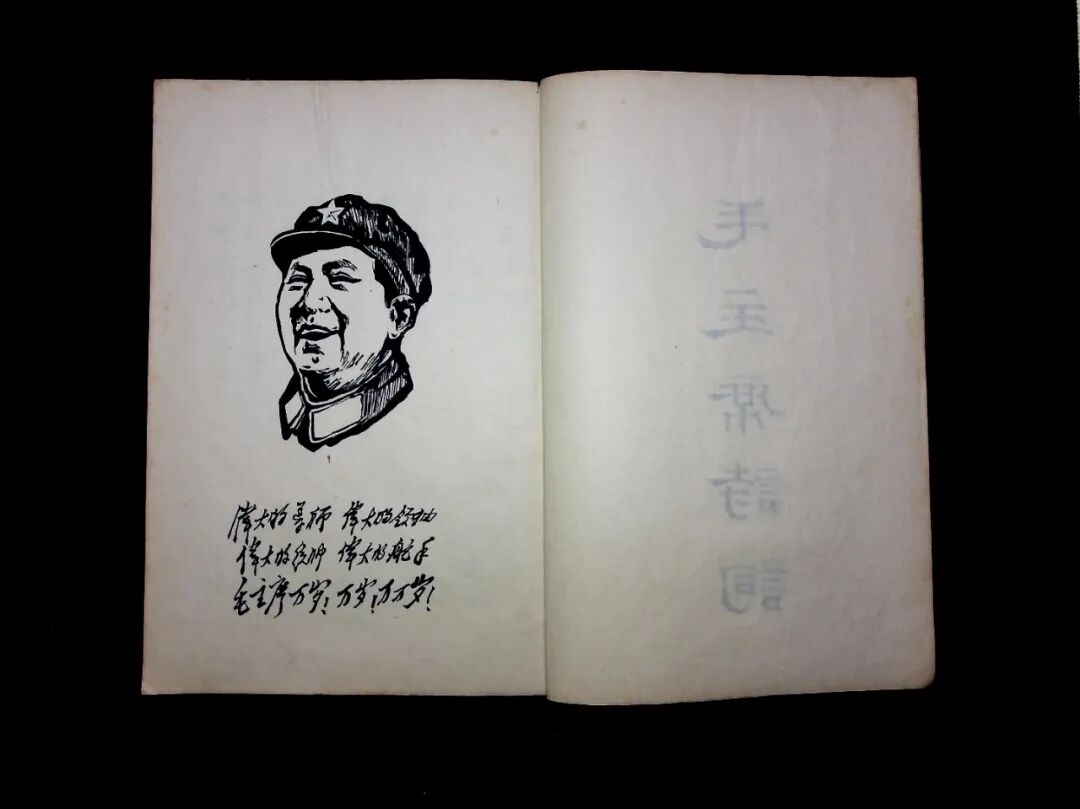 偉大的导师 偉大的领袖
偉大的统帅 偉大的舵手
毛主席万岁！万岁！万万岁！
毛主席詩詞